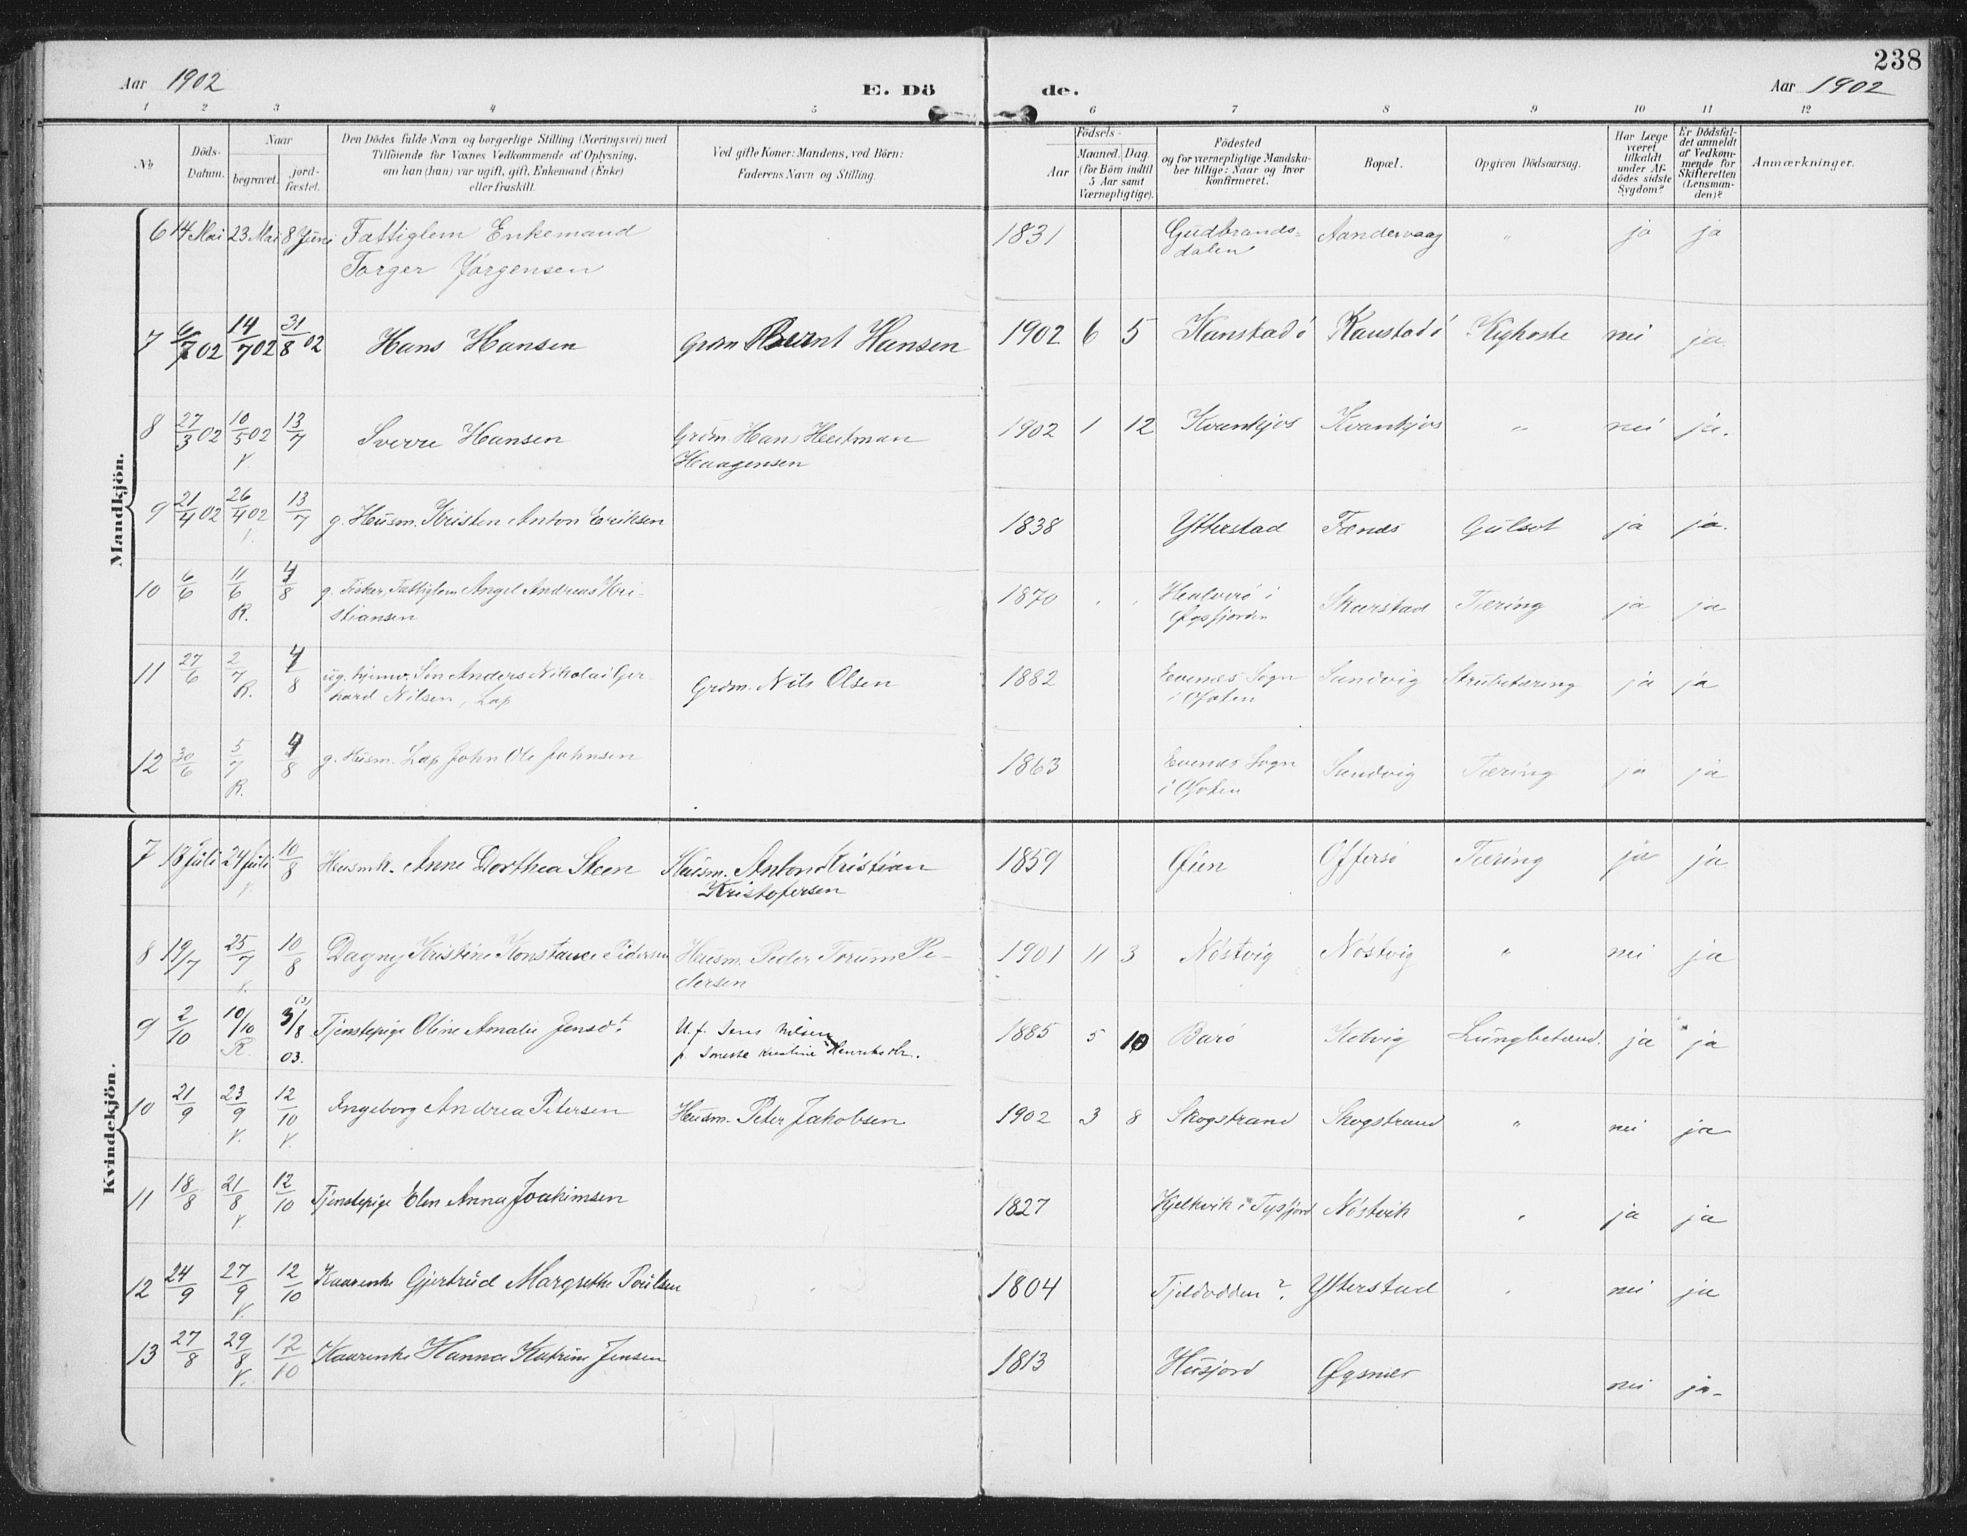 238
Aar 1902 E. Dö de. Aar 1902
1 2 3 4 5 6 7 8 9 10 11 12
No
Döds-
Datum.
Naar
begravet.
jord-
fæstet.
Den Dödes fulde Navn og borgerlige Stilling (Næringsvei) med
Tilföiende for Voxnes Vedkommende af Oplysning,
om han (hun) var ugift, gift, Enkemand (Enke)
eller fraskilt.
Ved gifte Koner: Mandens, ved Börn:
Faderens Navn og Stilling.
Födsels-
Aar
Maaned. Dag
(for Börn indtil
5 Aar samt
Værnepligtige).
Födested
og for værnepligtige Mandska-
ber tillige: Naar og hvor
konfirmeret.
Bopæl.
Opgiven Dödsaarsag.
Har Læge
været
tilkaldt
under Af-
dödes sidste
Sygdom?
Er Dödsfal-
det anmeldt
af Vedkom-
mende for
Skifteretten
(Lensman-
den)?
Anmærkninger.
Mandkjön.
6 14 Mai 23 Mai 8 Juni Fattiglem Enkemand 1831 Gudbrands- Aandervaag " ja ja
Torger Jörgensen dalen
7 6/7 02 14/7 02 31/8 02 Hans Hansen Grdm Bernt Hansen 1902 6 5 Kanstadö Kanstadö Kighoste nei ja
8 27/3 02 10/5 02 13/7 Sverre Hansen Grdm. Hans Heitman 1902 1 12 Kvankjos Kvankjos " nei ja.
V. Haagensen
9 21/4 02 26/4 02 13/7 g. Husm. Kristen Anton Eriksen 1838 Ytterstad Fænes Gulsot ja ja.
10 6/6 11/6 4/8 g. Fisker, Fattiglem Angel Andreas Kri- 1870 " " i Skarstad Tæring ja ja
R. stiansen Øgsfjorden
11 27/6 2/7 4/8 ug. hjemv. Søn Anders Nikolai Ger- Grdm. Nils Olsen 1882 Evenes Sogn Sandvig Strubetæring ja ja
R. hard Nilsen, Lap i Ofoten
12 30/6 5/7 4/8 g. Husm. Lap John Ole Johnsen 1863 Evenes Sogn Sandvig Tæring ja ja
R. i Ofoten
Kvindekjön.
7 18 Juli 24 Juli 10/8 Husmk. Anne Dorthea Steen Husm. Anton Kristian 1859 Øien Offersö Tæring ja ja
V. Kristofersen
8 19/7 25/7 10/8 Dagny Kristine Konstance Pedersen Husm. Peder Torum Pe- 1901 11 3 Nöstvig Nöstvig " nei ja
V. dersen
9 2/10 10/10 3/8 Tjenstepige Oline Amalie Jensdt. U.f. Jens Nilsen 1885 5 10 Barö Kolvig Lungbetænd. ja ja
R. 03. Henriksdtr.
10 21/9 23/9 12/10 Ingeborg Andrea Petersen Husm. Peter Jakobsen 1902 3 8 Skogstrand Skogstrand " nei ja
V. V.
11 18/8 21/8 12/10 Tjenstepige Elen Anna Joakimsen 1827 Kjelkvik i Tysfjord Nöstvik " ja ja
V.
12 24/9 27/9 12/10 Kaarenke Gjertrud Margrethe Poulsen 1804 Tjeldodden? Ytterstad " nei ja
V.
13 27/8 29/8 12/10 Kaarenke Hanna Katrine Jensen 1813 Husjord Øgsnær nei ja-
V.